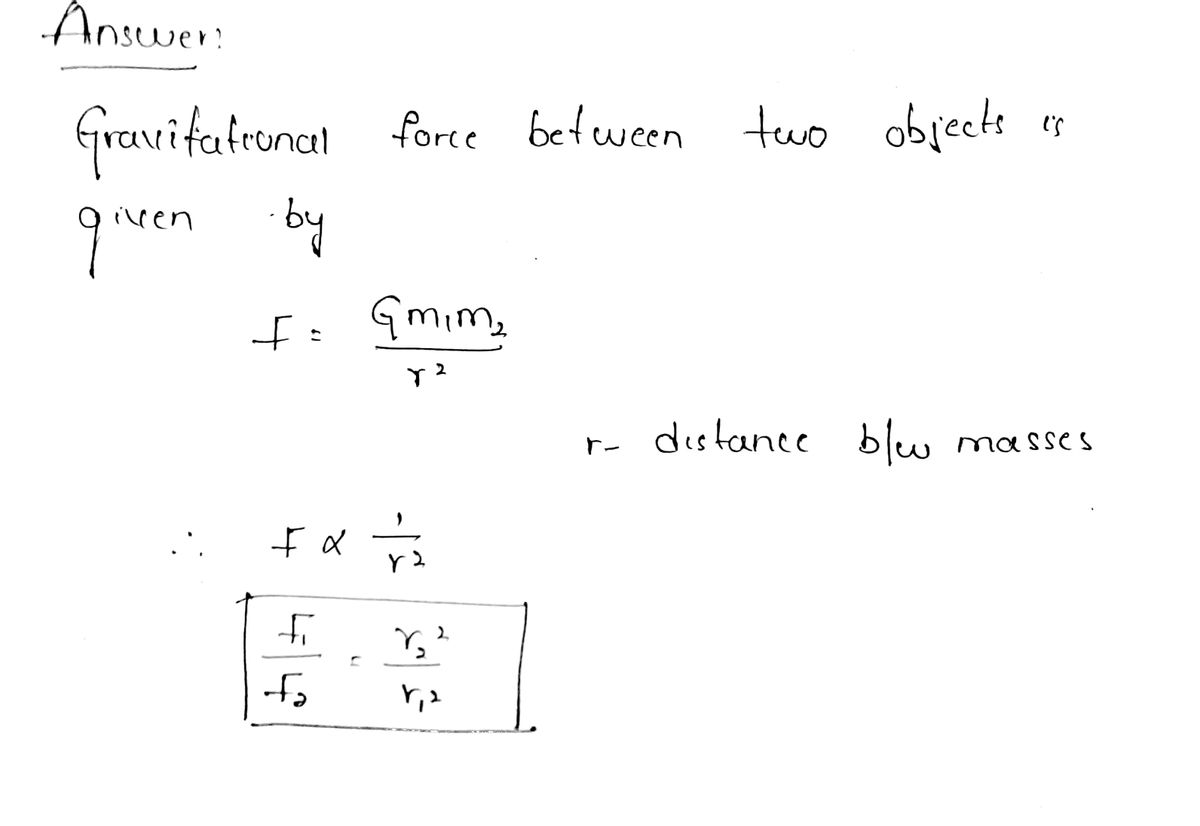 Answer:
Gravitational force between two objects is
given by
F = Gm₁m₂ / r²
r- distance b/w masses
∴ F ∝ 1 / r²
F₁ / F₂ = r₂² / r₁²